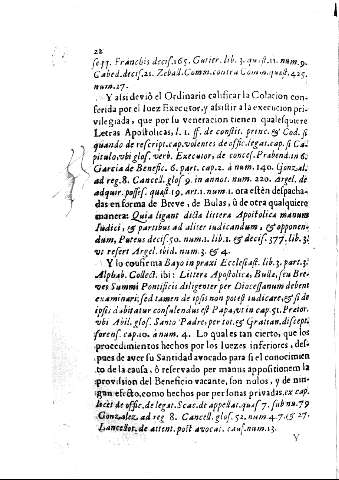 22
seq. Franchis decis. 165. Gutier. lib. 3. quæst. 11. num. 9.
Cabed. decis. 21. Zebad. Comm. contra Comm. quæst. 425.
num. 17.
Y assi deviò el Ordinario calificar la Colacion con-
ferida por el Iuez Executor, y assistir a la execucion pri-
vilegiada, que por su veneracion tienen qualesquiere
Letras Apostolicas, l. 1. ff. de constit. princ. & Cod. si
quando de rescript. cap. volentes de offic. legat. cap. si Ca-
pitulo, ubi glos. verb. Executor, de conces. Prabend. in 6.
Garcia de Benefic. 6. part. cap. 2. à num. 140. Gonzal.
ad reg. 8. Cancell. glos. 9. in annot. num. 220. Argel. de
adquir. posses. quæst. 19. art. 1. num. 1. ora estèn despacha-
das en forma de Breve, de Bulas, ù de otra qualquiere
manera: Quia ligant dicta littera Apostolica manum
Iudici, & partibus ad aliter iudicandum, & opponen-
dum, Puteus decis. 50. num. 1. lib. 1. & decis. 377. lib. 3.
ut refert Argel. ibid. num. 3. & 4.
Y lo confirma Bayo in praxi Ecclesiast. lib. 3. part. 3.
Alphab. Collect. ibi: Littera Apostolica, Bulla, seu Bre-
ves Summi Pontificis diligenter per Diœcesanum debent
examinari; sed tamen de ipsis non potest iudicare, & si de
ipsis dubitatur consulendus est Papa, ut in cap. 51. Pretor.
ubi Abil. glos. Santo Padre, per tot. & Gratian. discept.
forens. cap. 10. à num. 4. Lo qual es tan cierto, que los
procedimientos hechos por los Iuezes inferiores, des-
pues de aver su Santidad avocado para sì el conocimien-
to de la causa, ò reservado per manus appositionem la
provision del Beneficio vacante, son nulos, y de nin-
gun efecto, como hechos por personas privadas, ex cap.
licet de offic. de legat. Scac. de appellat. quæst. 7. sub num. 79
Gonzalez ad reg. 8. Cancell. glos. 52. num. 47. & 27.
Lancellot. de attent. post avocat. caus. num. 13.
Y